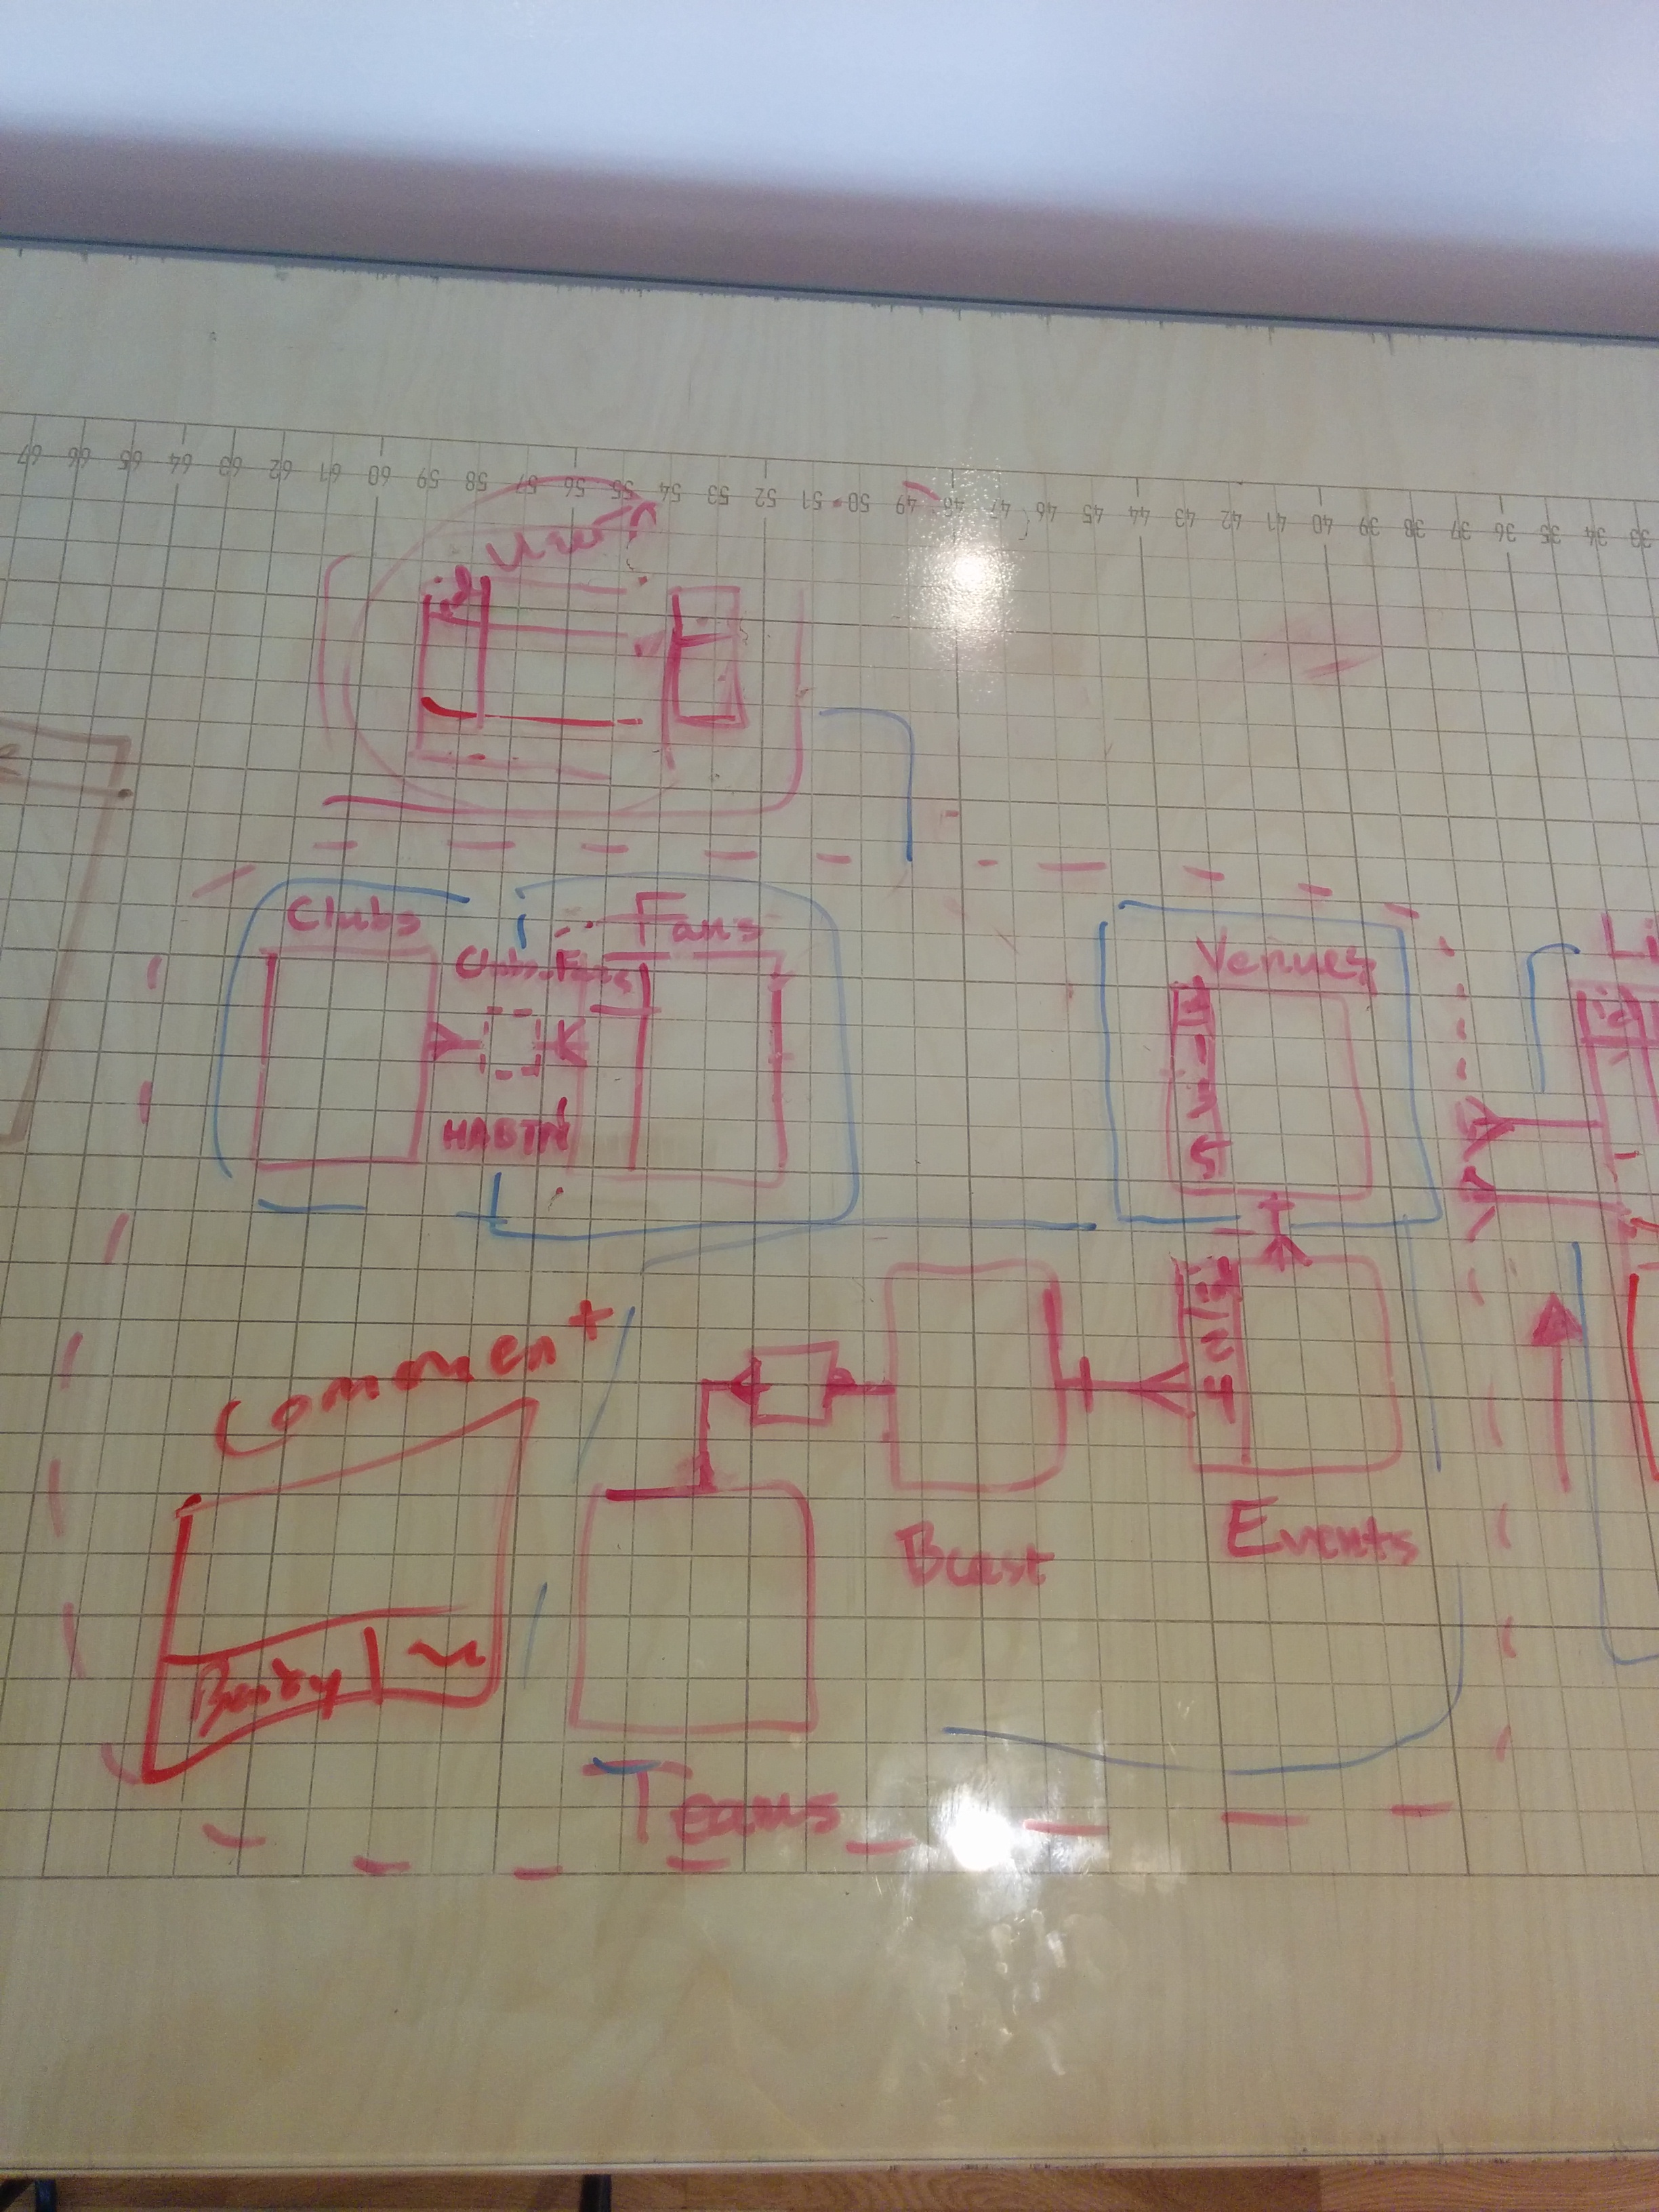 67 66 65 64 63 62 61 60 59 58 57 56 55 54 53 52 51 50 49 48 47 46 45 44 43 42 41 40 39 38 37 36 35 34 33
id
Clubs
Fans
Clubs-Fans
HABTM
Venues
id
1
5
Li
id
id
2
4
Comment
Body
Beast
Events
Teams